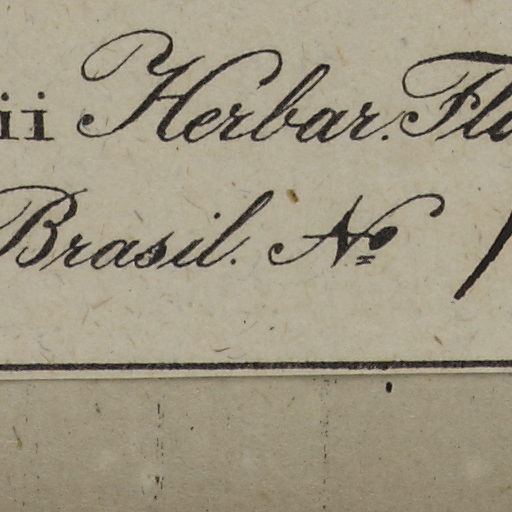 ii Herbar. Flo
Brasil. No